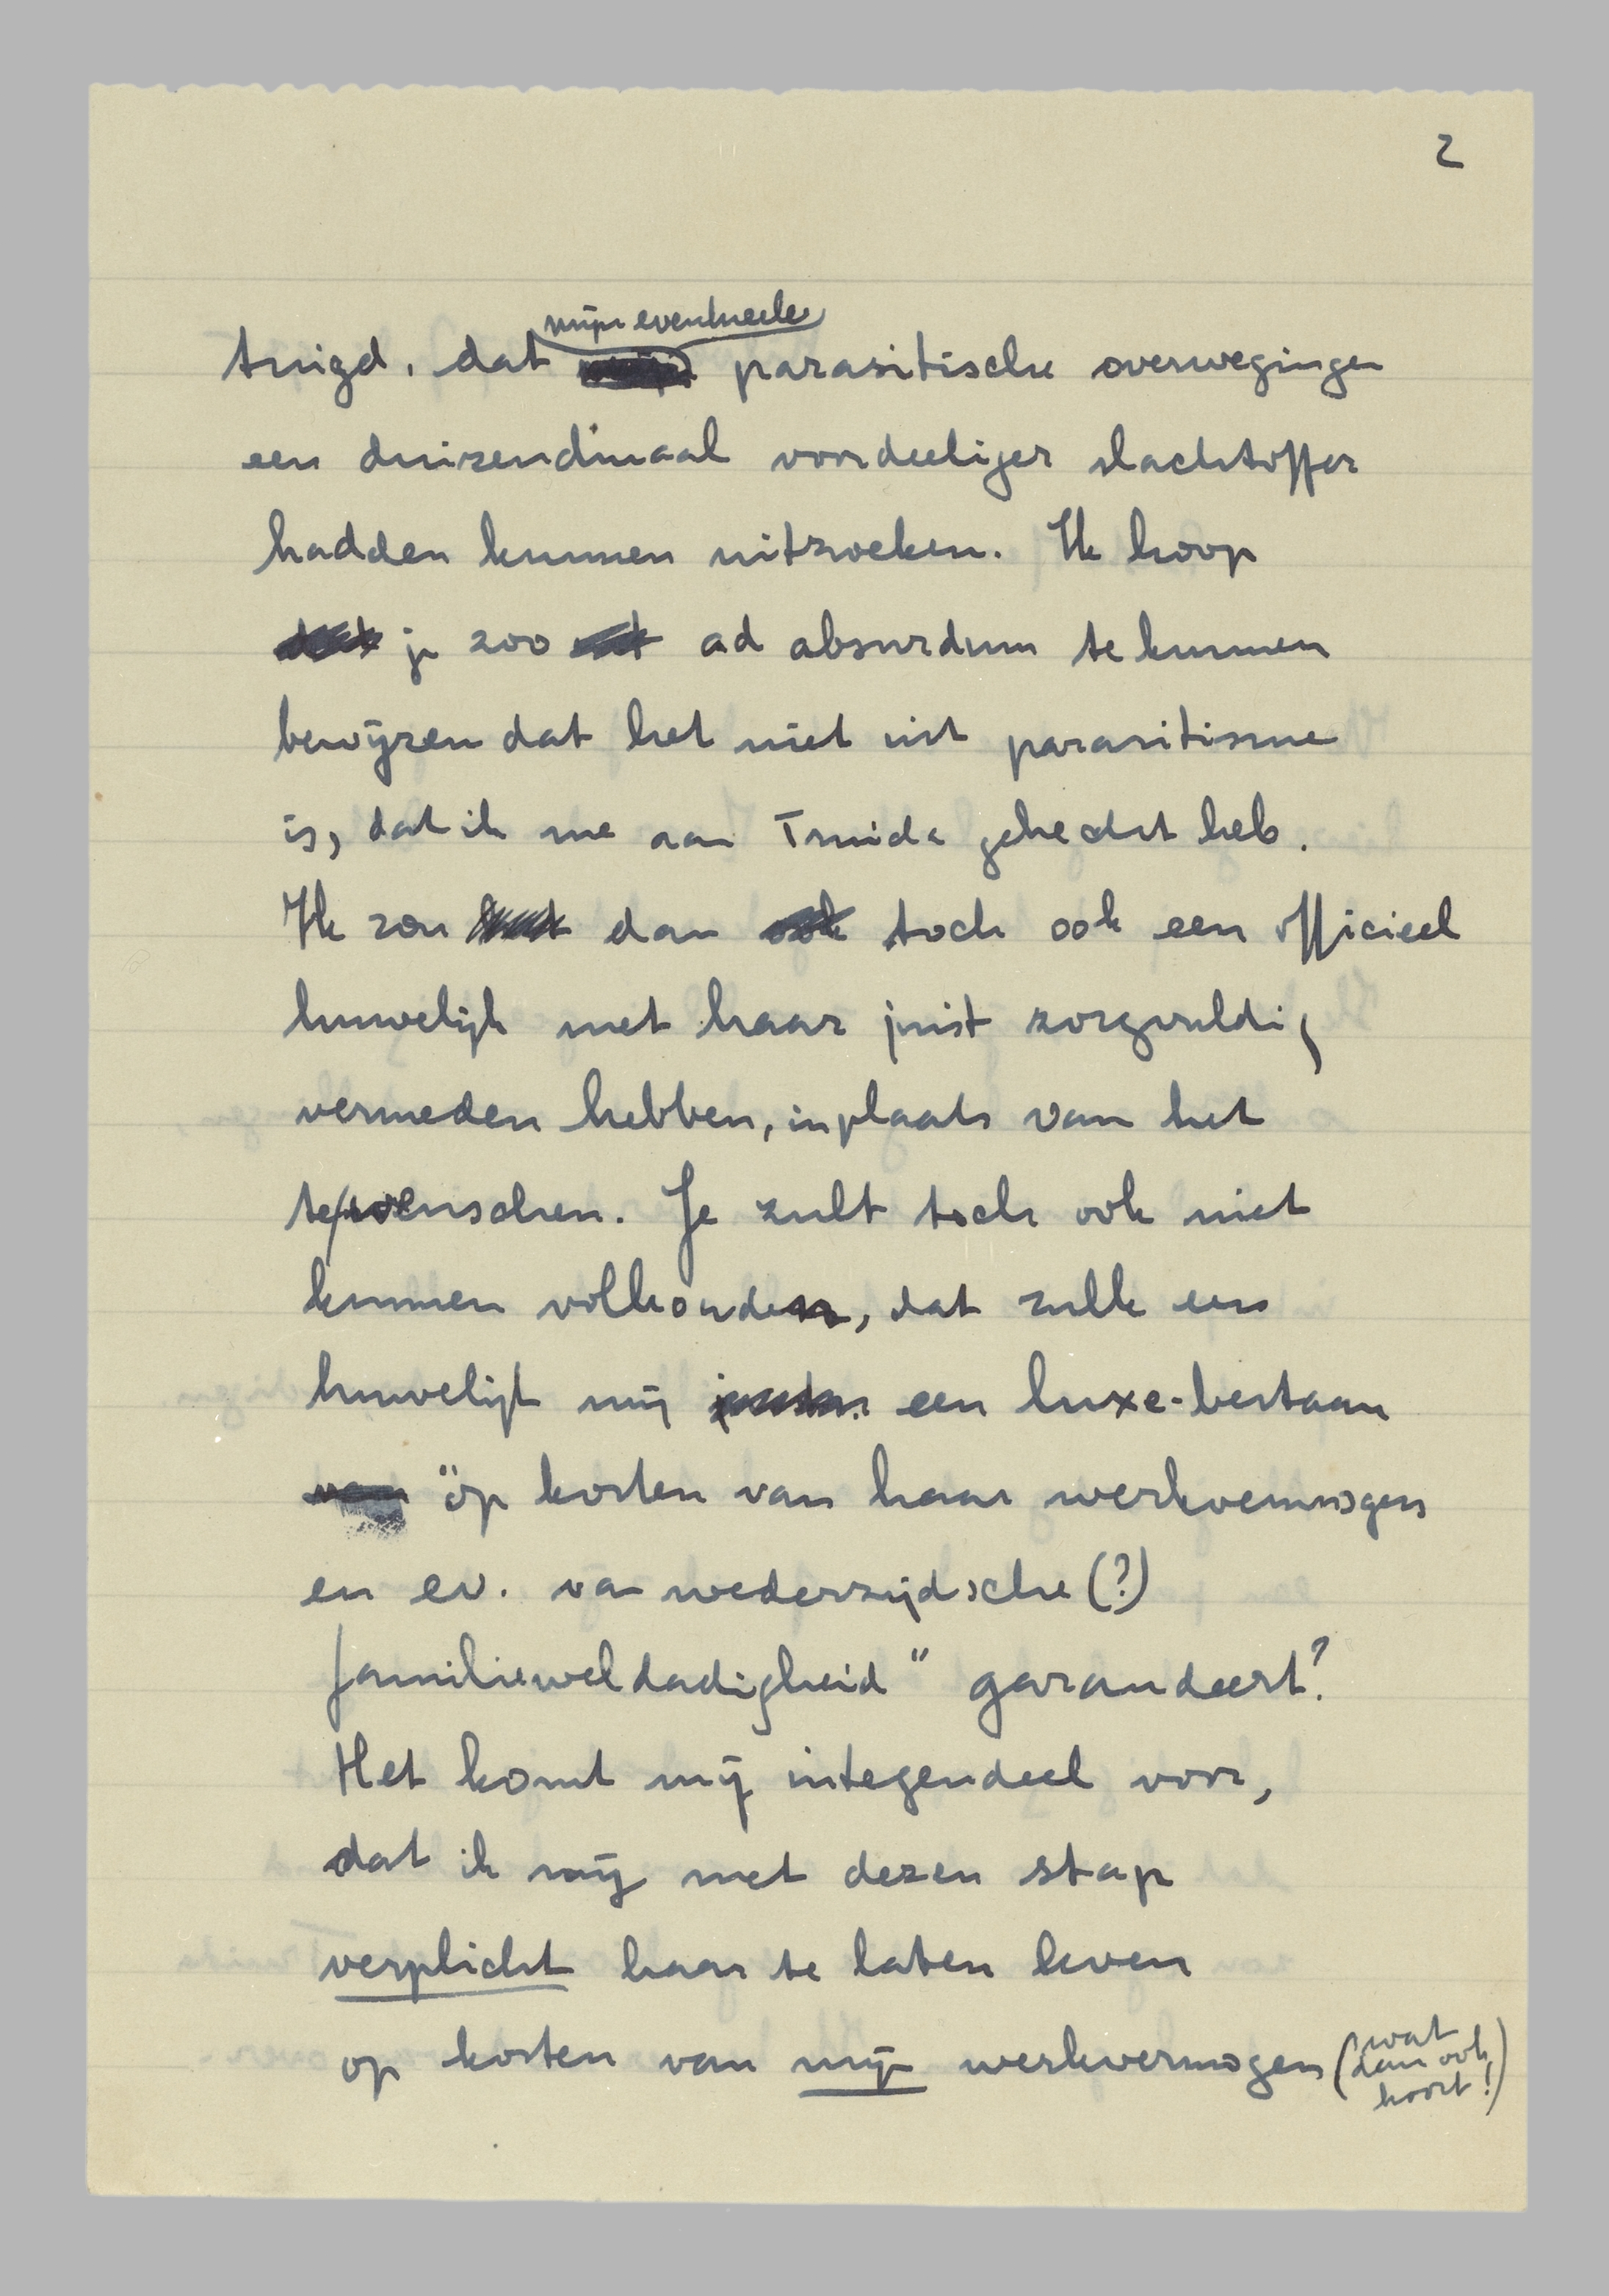 2
tuigd, dat mijn eventueele parasitische overwegingen
een duizendmaal voordeeliger slachtoffer
hadden kunnen uitzoeken. Ik hoop
je zoo ad absurdum te kunnen
bewijzen dat het niet uit parasitisme
is, dat ik me aan Truida gehecht heb.
Ik zou dan toch ook een officieel
huwelijk met haar juist zorgvuldig
vermeden hebben, inplaats van het
te wenschen. Je zult toch ook niet
kunnen volhouden, dat zulk een
huwelijk mij een luxe-bestaan
"op kosten van haar werkvermogen
en ev. van wederzijdsche (?)
familieweldadigheid" garandeert?
Het komt mij integendeel voor,
dat ik mij met dezen stap
verplicht haar te laten leven
op kosten van mijn werkvermogen (wat
dan ook
hoort!)